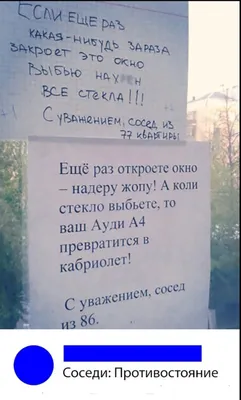 ЕСЛИ ЕЩЕ РАЗ
КАКАЯ-НИБУДЬ ЗАРАЗА
ЗАКРОЕТ ЭТО ОКНО
ВЫБЬЮ НАХРЕН
ВСЕ СТЕКЛА!!!
С УВАЖЕНИЕМ, СОСЕД ИЗ
77 КВАРТИРЫ
Ещё раз откроете окно
– надеру жопу! А коли
стекло выбьете, то
ваш Ауди А4
превратится в
кабриолет!
С уважением, сосед
из 86.
Соседи: Противостояние